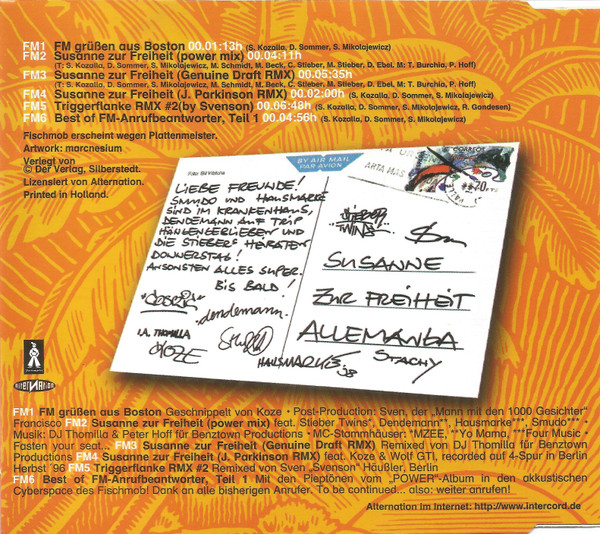 FM1 FM grüßen aus Boston 00.01:13h (S. Kozalla, D. Sommer, S. Mikolajewicz)
FM2 Susanne zur Freiheit (power mix) 00.04:11h
(T: S. Kozalla, D. Sommer, S. Mikolajewicz, M. Schmidt, M. Beck, C. Stieber, M. Stieber, D. Ebel. M: T. Burchia, P. Hoff)
FM3 Susanne zur Freiheit (Genuine Draft RMX) 00.05:35h
(T: S. Kozalla, D. Sommer, S. Mikolajewicz, M. Schmidt, M. Beck, C. Stieber, M. Stieber, D. Ebel. M: T. Burchia, P. Hoff)
FM4 Susanne zur Freiheit (J. Parkinson RMX) 00.02:00h (S. Kozalla, D. Sommer, S. Mikolajewicz)
FM5 Triggerflanke RMX #2(by Svenson) 00.06:48h (S. Kozalla, D. Sommer, S. Mikolajewicz, R. Gandesen)
FM6 Best of FM-Anrufbeantworter, Teil 1 00.04:56h (S. Kozalla, D. Sommer, S. Mikolajewicz)
Fischmob erscheint wegen Plattenmeister.
Artwork: marcnesium
Verlegt von
© Der Verlag, Silberstedt.
Lizensiert von Alternation.
Printed in Holland.
BY AIR MAIL
PAR AVION
CORREOS
LIEBE FREUNDE!
SMUDO UND HAUSMARKE
SIND IM KRANKENHAUS,
DENDEMANN AUF TRIP
HÄNGENGEBLIEBEN UND
DIE STIEBERS HEIRATEN
DONNERSTAG!
ANSONSTEN ALLES SUPER.
BIS BALD!
dendemann.
I.A. THOMILLA
KOZE
HAUSMARKE '98
STIEBER
TWINS
SUSANNE
ZUR FREIHEIT
ALLEMANGA
STACHY
alternation
FM1 FM grüßen aus Boston Geschnippelt von Koze • Post-Production: Sven, der „Mann mit den 1000 Gesichter"
Francisco FM2 Susanne zur Freiheit (power mix) feat. Stieber Twins*, Dendemann**, Hausmarke***, Smudo*** •
Musik: DJ Thomilla & Peter Hoff für Benztown Productions • MC-Stammhäuser: *MZEE, **Yo Mama, ***Four Music •
Fasten your seat... FM3 Susanne zur Freiheit (Genuine Draft RMX) Remixed von DJ Thomilla für Benztown
Productions FM4 Susanne zur Freiheit (J. Parkinson RMX) feat. Koze & Wolf GTI, recorded auf 4-Spur in Berlin
Herbst '96 FM5 Triggerflanke RMX #2 Remixed von Sven „Svenson" Häußler, Berlin
FM6 Best of FM-Anrufbeantworter, Teil 1 Mit den Pieptönen vom „POWER"-Album in den akkustischen
Cyberspace des Fischmob! Dank an alle bisherigen Anrufer. To be continued... also: weiter anrufen!
Alternation im Internet: http://www.intercord.de